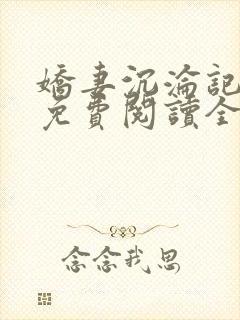 嬌妻沉淪記
免費閱讀全
念念我思